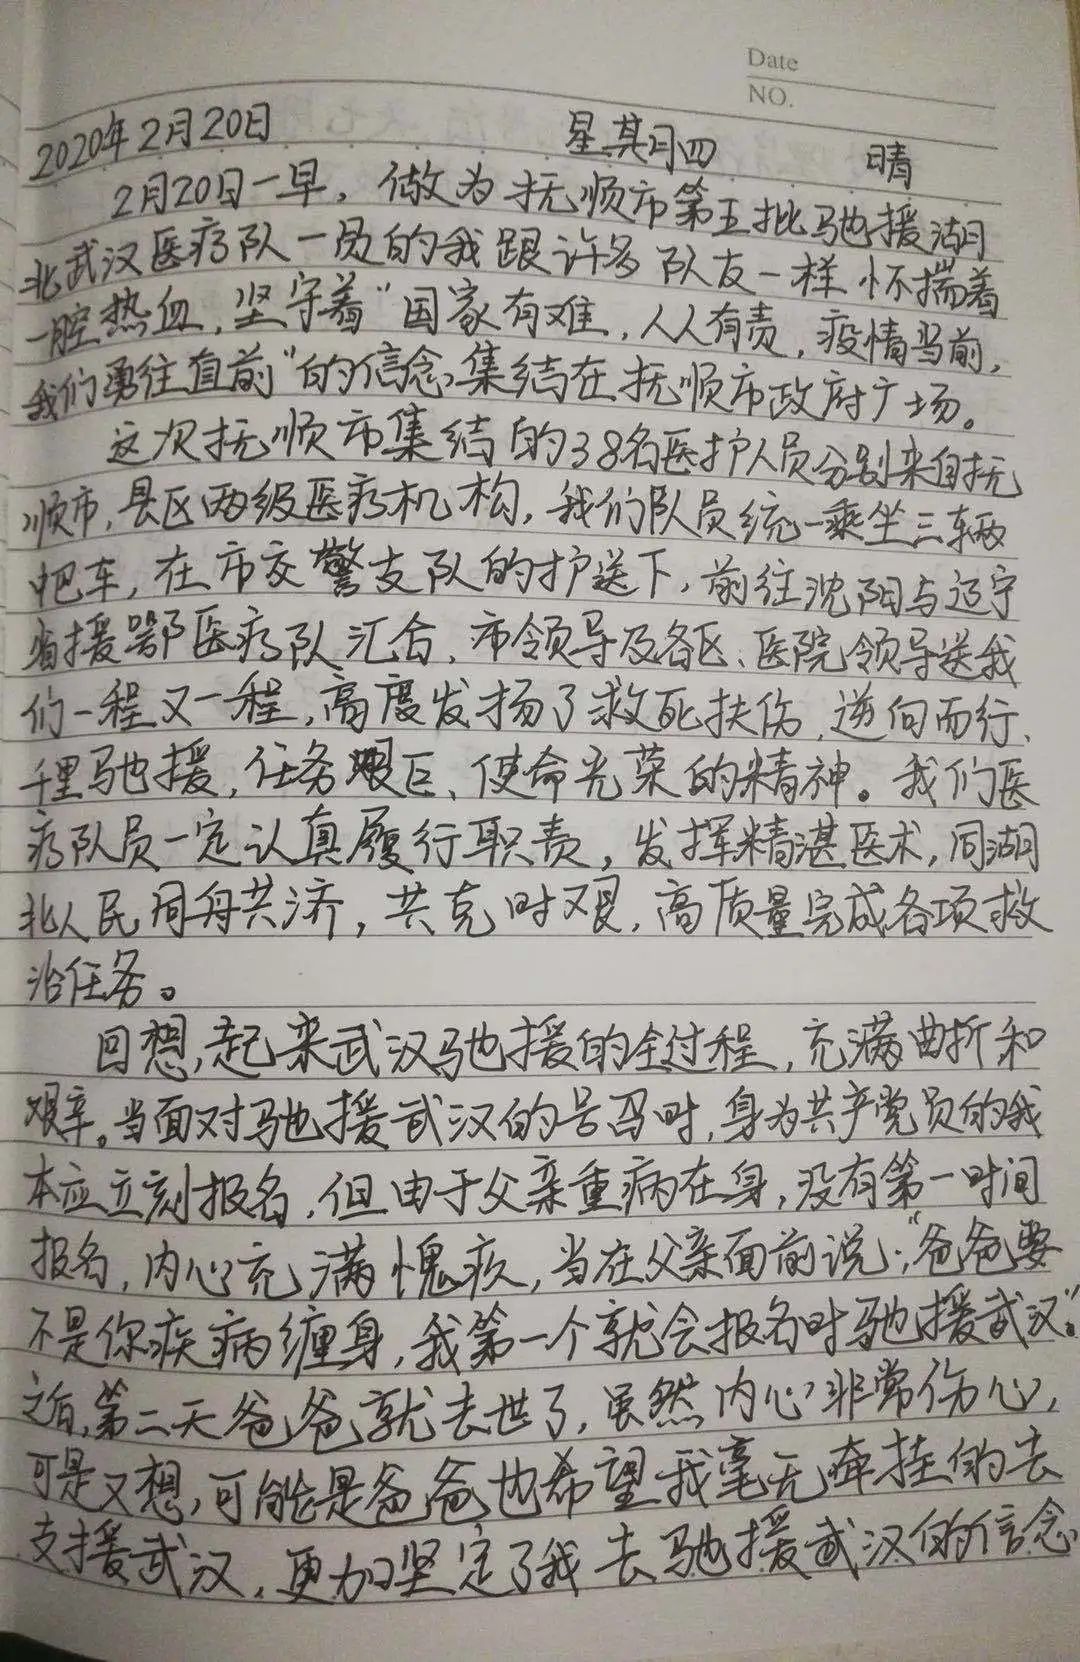 Date
NO.
2020年2月20日 星期四 晴
2月20日一早，做为抚顺市第五批驰援湖
北武汉医疗队一员的我跟许多队友一样怀揣着
一腔热血，坚守着“国家有难，人人有责，疫情当前，
我们勇往直前”的信念，集结在抚顺市政府广场。
这次抚顺市集结的38名医护人员分别来自抚
顺市，县区两级医疗机构，我们队员统一乘坐三辆
中巴车，在市交警支队的护送下，前往沈阳与辽宁
省援鄂医疗队汇合，市领导及各区、医院领导送我
们一程又一程，高度发扬了救死扶伤，逆向而行、
千里驰援，任务艰巨、使命光荣的精神。我们医
疗队员一定认真履行职责，发挥精湛医术，同湖
北人民同舟共济，共克时艰，高质量完成各项救
治任务。
回想，起来武汉驰援的全过程，充满曲折和
艰辛。当面对驰援武汉的号召时，身为共产党员的我
本应立刻报名，但由于父亲重病在身，没有第一时间
报名，内心充满愧疚，当在父亲面前说：“爸爸要
不是你疾病缠身，我第一个就会报名时驰援武汉。”
之后，第二天爸爸就去世了，虽然内心非常伤心，
可是又想，可能是爸爸也希望我毫无牵挂的去
支援武汉，更加坚定了我去驰援武汉的信念